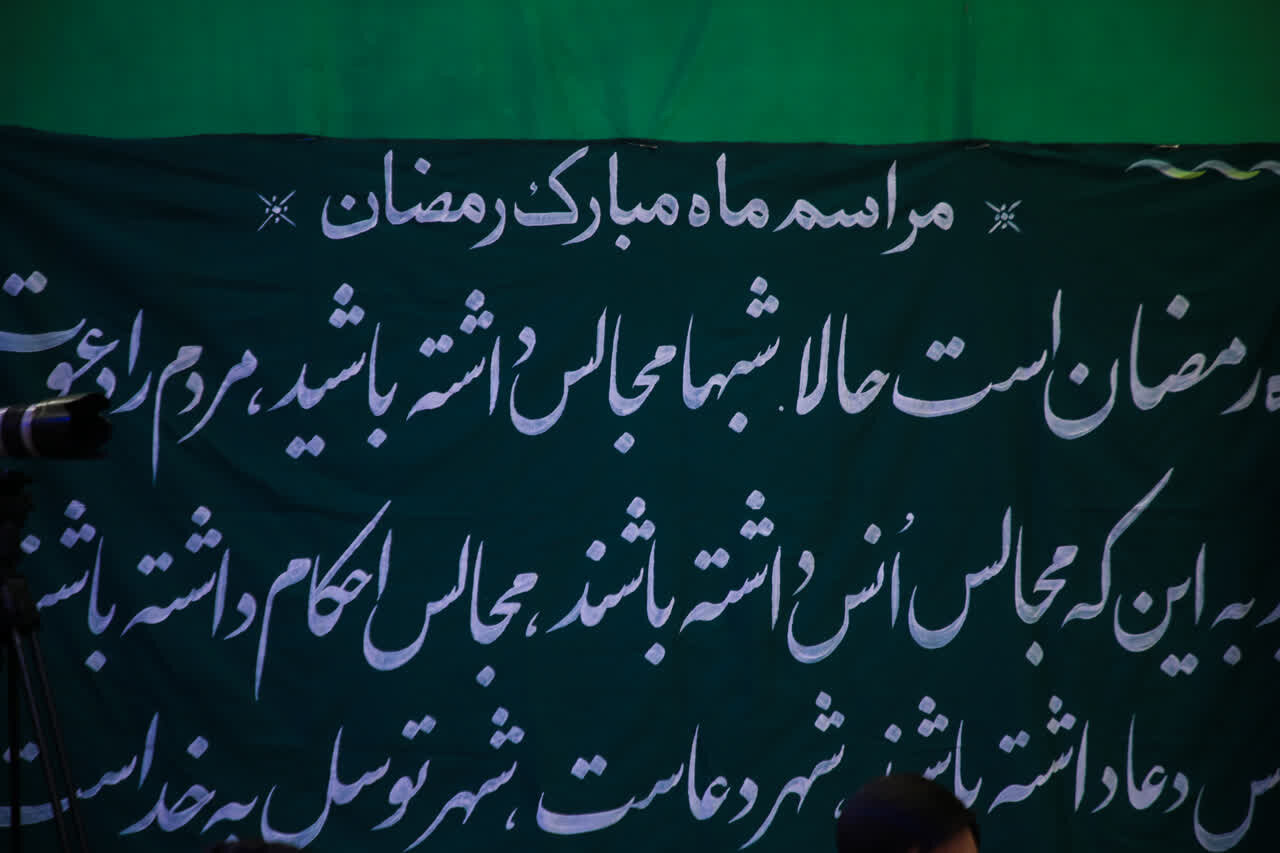 مراسم ماه مبارک رمضان
رمضان است حالا شبها مجالس داشته باشید، مردم را دعوت
به این که مجالس اُنس داشته باشند، مجالس احکام داشته باشند
دعا داشته باشند، شهر دعاست، شهر توسل به خداست